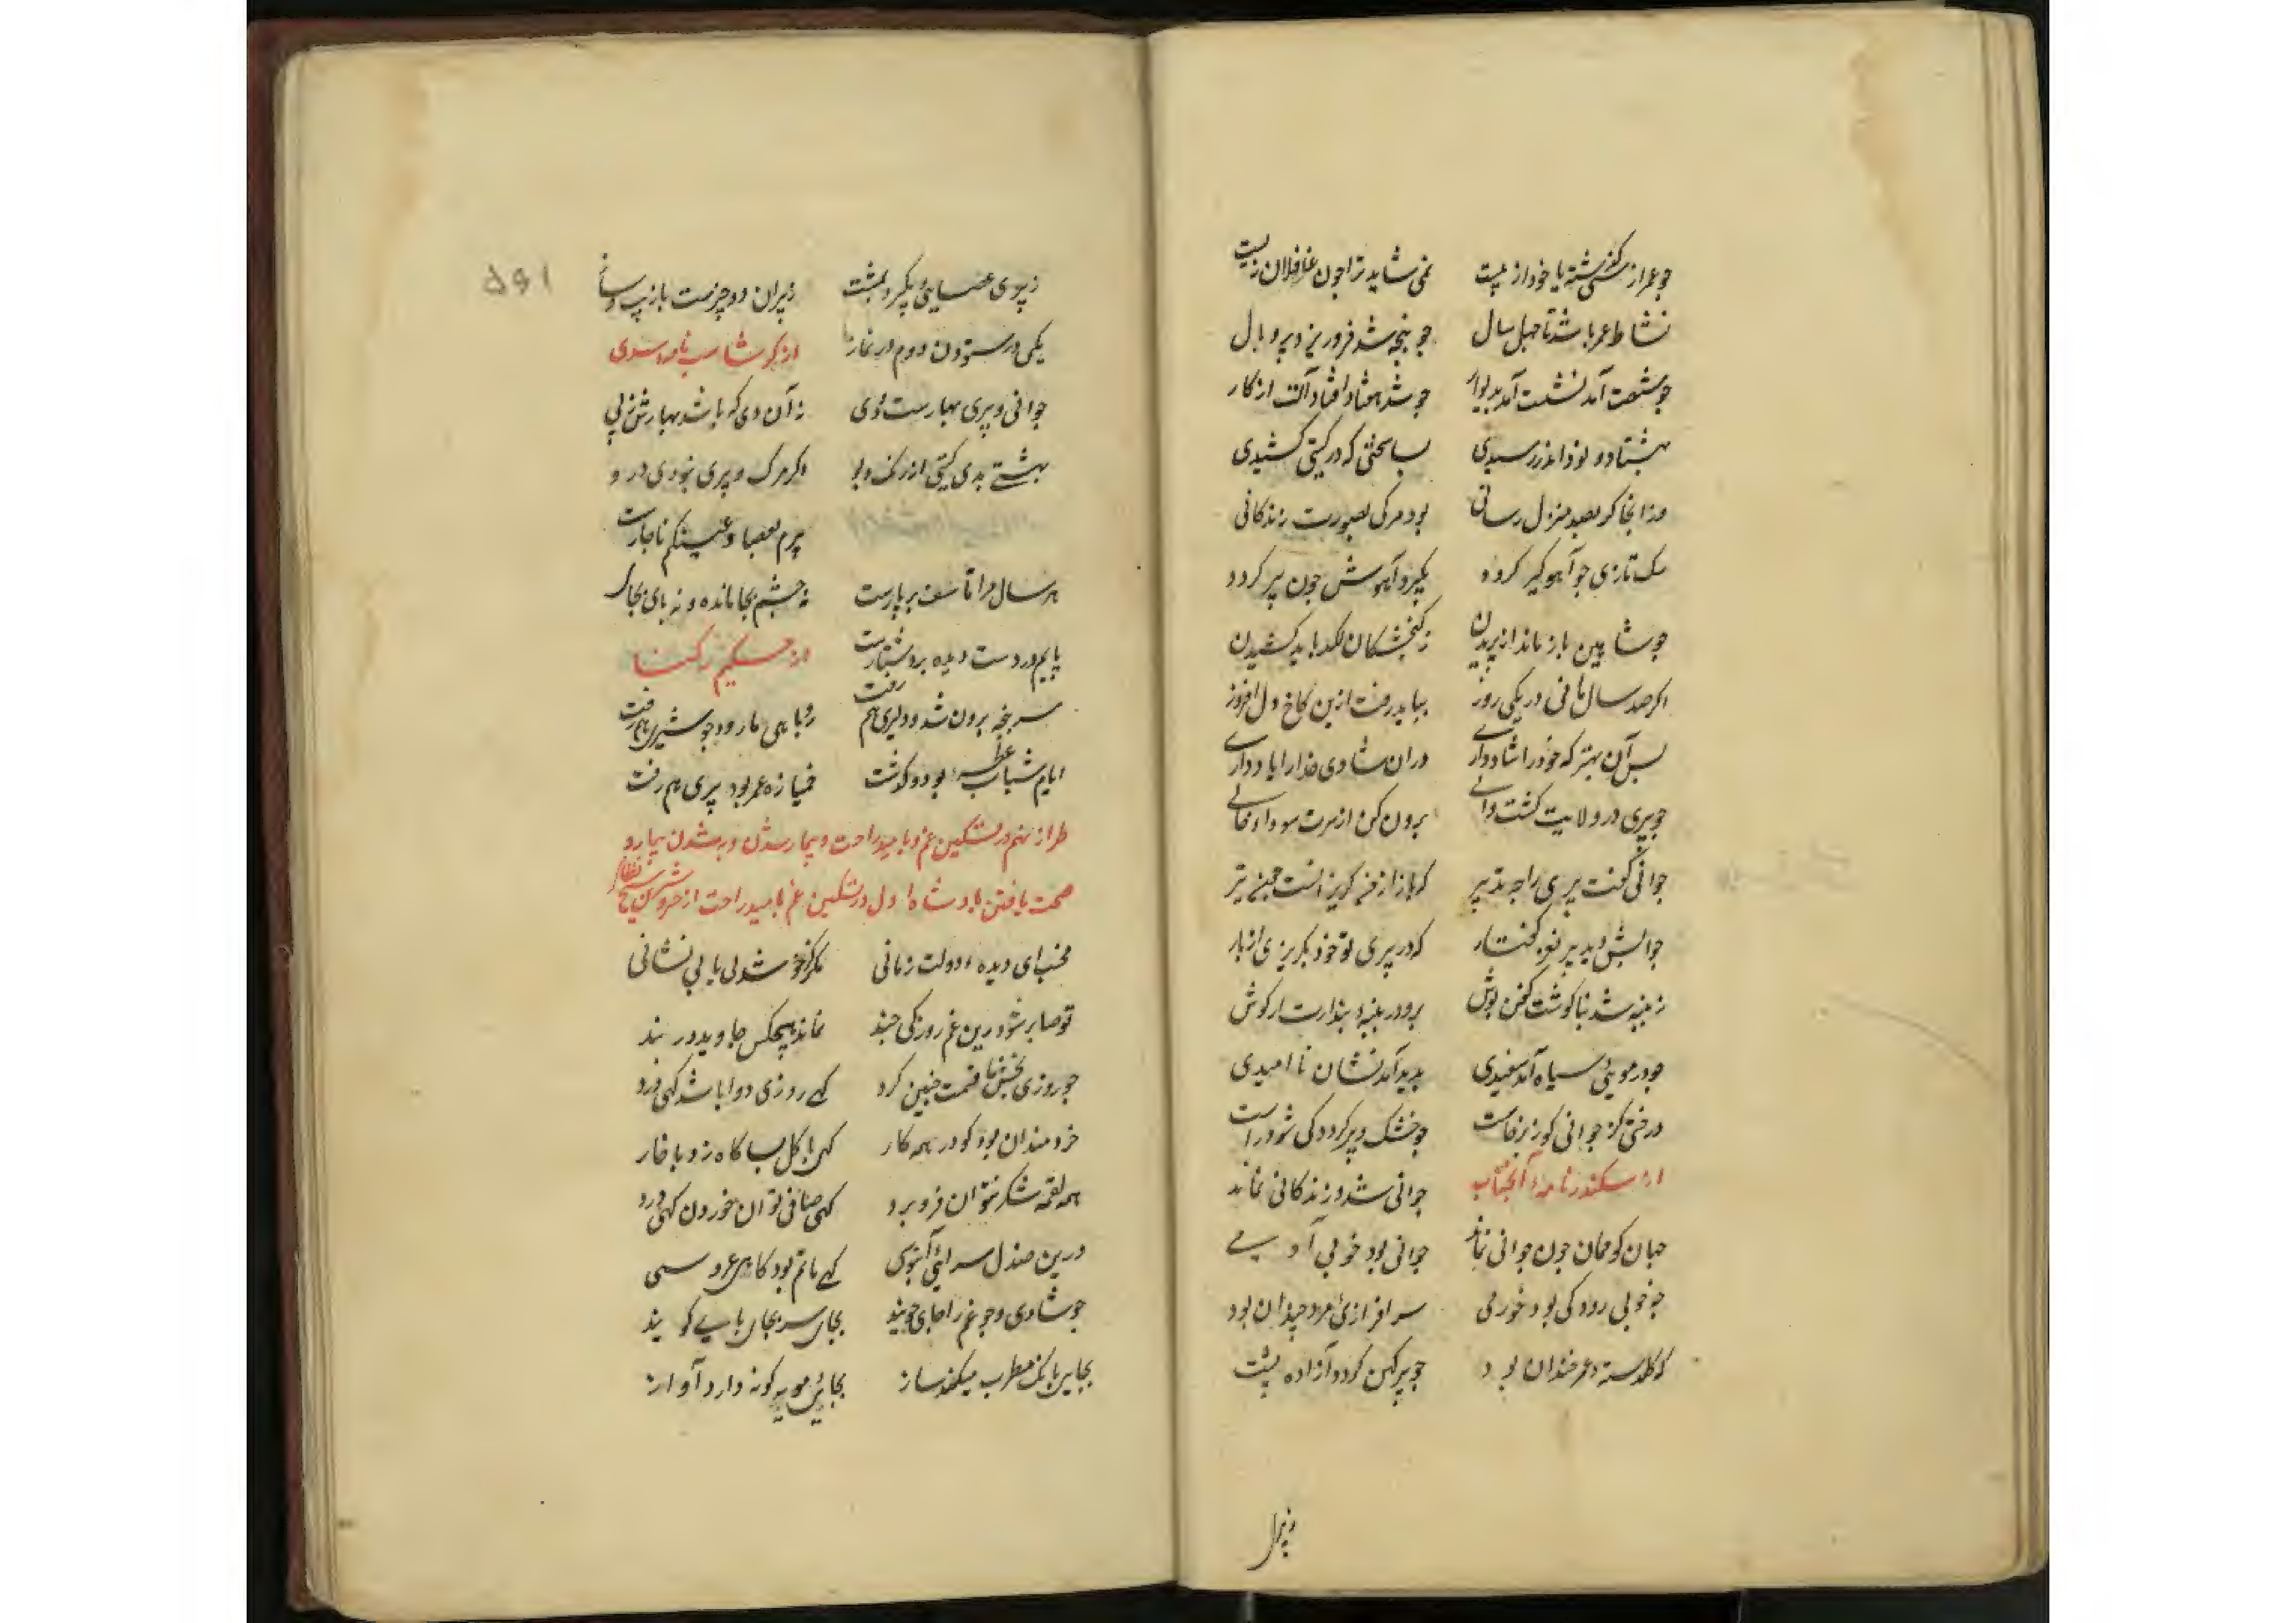 چو عمر از سی گذشته یا خود از بیست نمی شاید ترا چون غافلان زیست
نشاط عمر باشد تا چهل سال چو پنجه شد فرو ریزد پر و بال
چو شصت آمد نشست آمد بدیوار چو شد هفتاد افتاد آلت از کار
بهشتاد و نود اندر رسیدی بسا سختی که در گیتی کشیدی
وز انجا گر بصد منزل رسانی بود مرگی بصورت زندگانی
سگ تازی چو آهوگیر گردد بگیرد آهوش چون پیر گردد
چو شاهین باز ماند از پریدن ز گنجشکان لگد باید کشیدن
اگر صد سال مانی در یکی روز بباید رفت ازین کاخ دل افروز
پس آن بهتر که خود را شاد داری دران شادی خدا را یاد داری
چو پیری در ولایت گشت والی برون کن از سرت سودا
جوانی گفت پیری را چه تدبیر که یار از من گریزد چون شوم پیر
جوابش داد پیر نغز گفتار که در پیری تو خود بگریزی از یار
ز پنبه شد بناگوشت کفن پوش برو در پنبه پندارت از گوش
چو در موی سیاه آمد سفیدی پدید آمد نشان نا امیدی
درختی کز جوانی کوژ برخاست چو خشک و پیر گردد کی شود راست
از سکندرنامه آنجناب جوانی شد و زندگانی نماند
جهان گو ممان چون جوانی نماند جوانی بود خوبی آدمی
چو خوبی رود کی بود خرمی سرافرازی مرد چندان بود
که گلدسته عمر خندان بود چو پیر کهن گردد آزاده پشت
ز پیری عصایی بگیرد بمشت ز پیران دو چیزست با زیب و ساز
یکی در ستودن دوم در نماز از گرشاسب نامه اسدی
جوانی و پیری بهارست و دی ز آن دی که باشد بهارش ز پی
بهشتی بدی گیتی از رنگ و بو اگر مرگ و پیری نبودی در و
پیرم بعصا و عینکم ناچارست
هر سال مرا تاسف بر پارست نه چشم بجا مانده و نه پای بجا
پایم در دست دیده بر دستارست از حکیم رکنا
سر پنجه برون شد و دلیری هم رفت روباهی ما رود چو شیری هم رفت
ایام شباب بود و گذشت خمیازه عمر بود پیری هم رفت
طراز نهم در تسکین غم و بامید راحت و بیمار شدن و به شدن بیمار و
صحت یافتن پادشاه اول در تسکین غم بامید راحت از خسرو شیرین شیخ نظامی
مخسب ای دیده دولت زمانی مگر کز خوشدلی یابی نشانی
تو صابر شو درین غم روزکی چند نماند هیچکس جاوید در بند
چو روزی بخش ما قسمت چنین کرد گهی روزی دوا باشد گهی درد
خردمندان بود کو در همه کار گهی با گل بسا گاه زد با خار
همه لقمه شکر نتوان فرو برد گهی صافی توان خوردن گهی درد
درین صندل سرای آبنوسی گهی ماتم بود گاهی عروسی
چو شادی و چو غم را جای جویند بجایی سر بجایی پای کویند
بجایی بانگ مطرب میکند ساز بجایی مویه گر دارد آواز